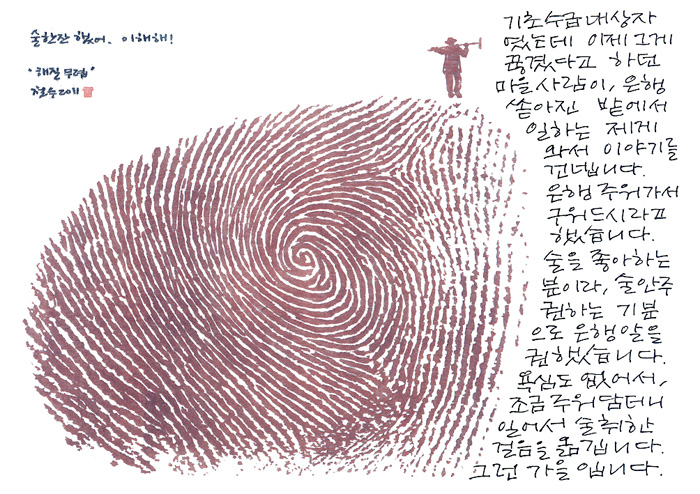 술한잔 했어. 이해해!
"해질 무렵"
철수2011
기초수급 대상자
였는데 이제 그게
끊겼다고 하던
마을사람이, 은행
쏟아진 밭에서
일하는 제게
와서 이야기를
건넵니다.
은행 주워가서
구워드시라고
했습니다.
술을 좋아하는
분이라, 술안주
권하는 기분
으로 은행알을
권했습니다.
욕심도 없어서,
조금 주워 담더니
일어서 술취한
걸음을 옮깁니다.
그런 가을 입니다.